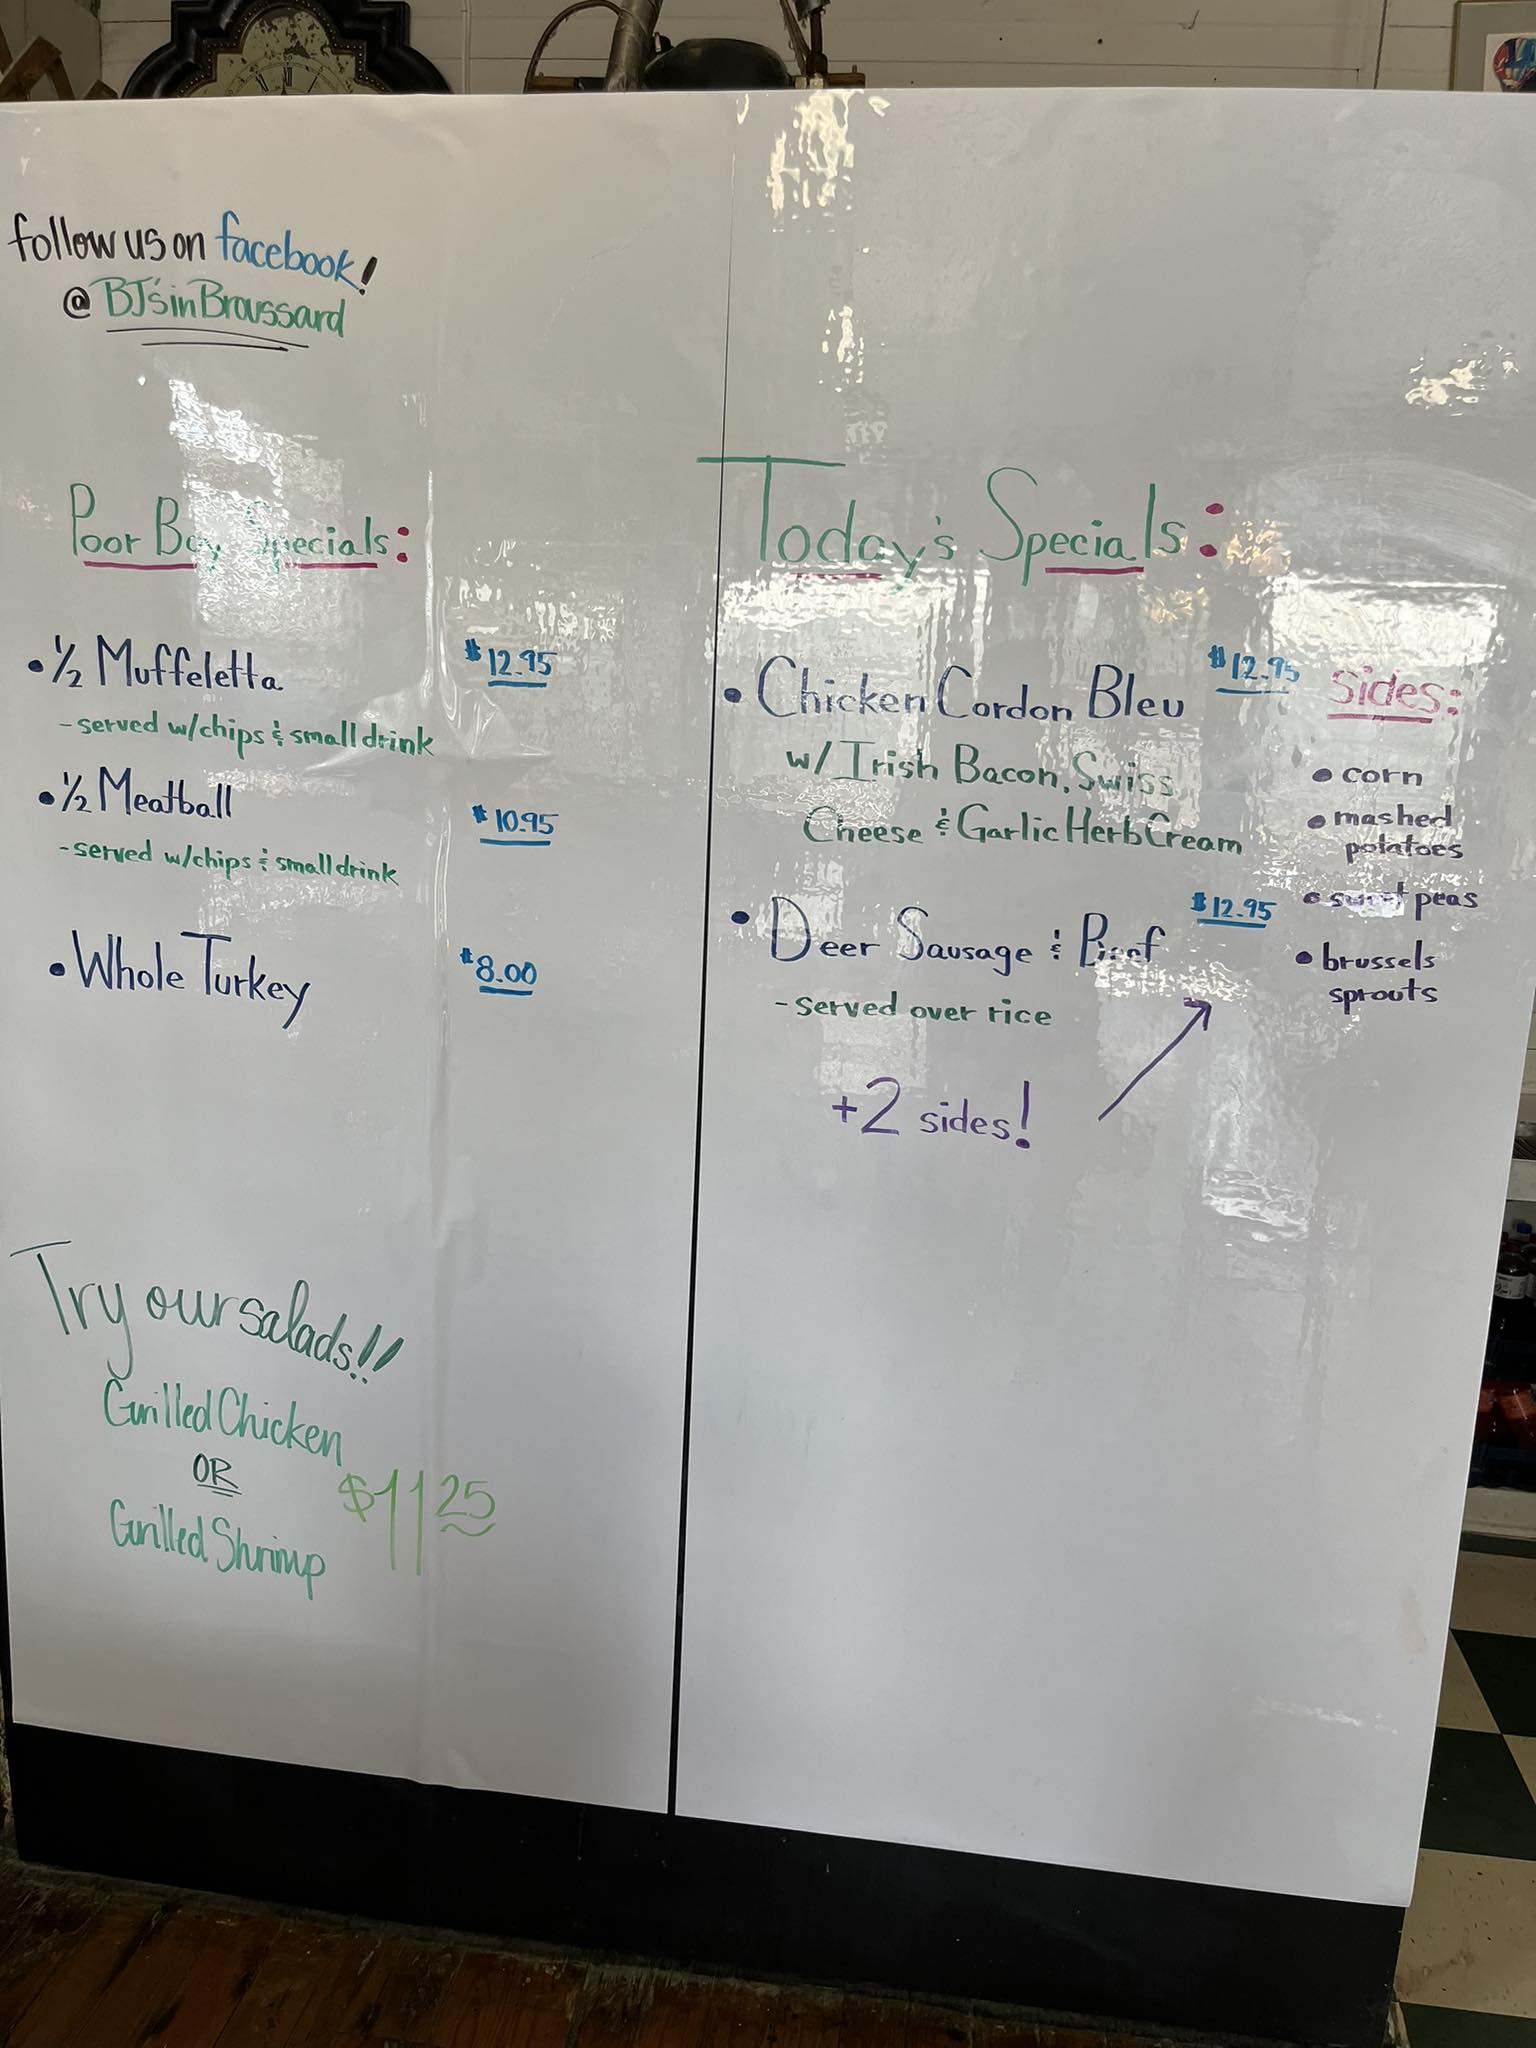 follow us on facebook!
@ BJ'sinBroussard
Poor Boy Specials:
• 1/2 Muffeletta $12.95
- served w/chips & small drink
• 1/2 Meatball $10.95
- served w/chips & small drink
• Whole Turkey $8.00
Try our salads!!
Grilled Chicken
OR
Grilled Shrimp
$11.25
Today's Specials:
• Chicken Cordon Bleu $12.95
w/ Irish Bacon, Swiss
Cheese & Garlic Herb Cream
• Deer Sausage & Beef $12.95
- served over rice
+2 sides!
Sides:
• corn
• mashed
potatoes
• sweet peas
• brussels
sprouts